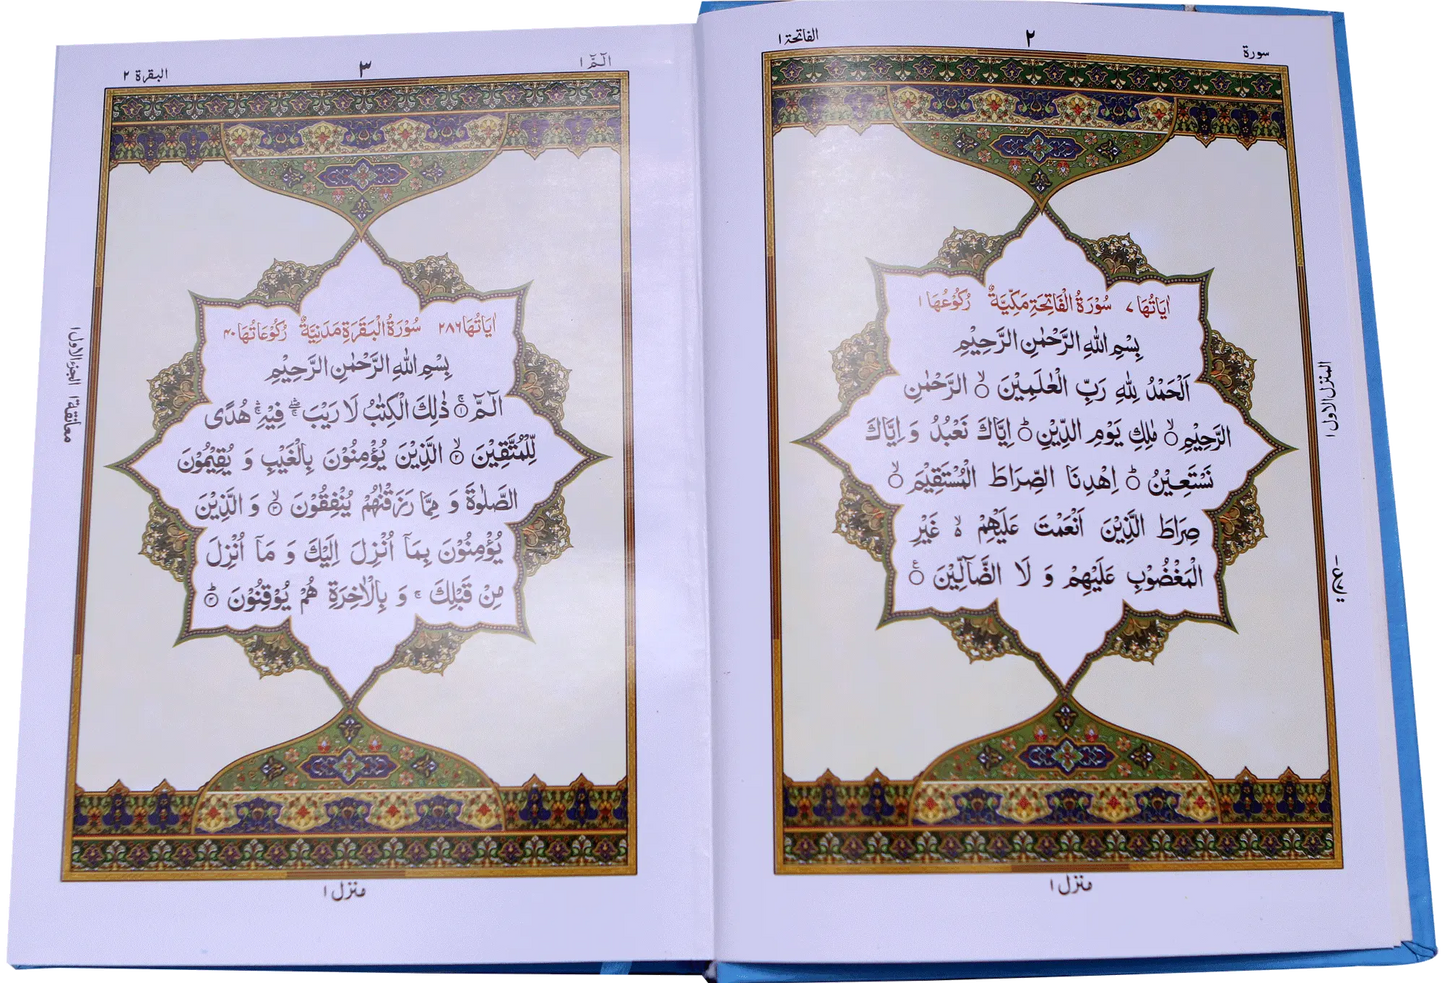 سورة
٢
الفاتحة ١
اٰيَاتُهَا ٧ سُوْرَةُ الْفَاتِحَةِ مَكِّيَّةٌ رُكُوْعُهَا ١
بِسْمِ اللّٰهِ الرَّحْمٰنِ الرَّحِيْمِ
اَلْحَمْدُ لِلّٰهِ رَبِّ الْعٰلَمِيْنَ ۙ الرَّحْمٰنِ
الرَّحِيْمِ ۙ مٰلِكِ يَوْمِ الدِّيْنِ ؕ اِيَّاكَ نَعْبُدُ وَ اِيَّاكَ
نَسْتَعِيْنُ ؕ اِهْدِنَا الصِّرَاطَ الْمُسْتَقِيْمَ ۙ
صِرَاطَ الَّذِيْنَ اَنْعَمْتَ عَلَيْهِمْ ۙ غَيْرِ
الْمَغْضُوْبِ عَلَيْهِمْ وَ لَا الضَّآلِّيْنَ
المنزل الاول ١
منزل ١
الٓمّٓ ١
٣
البقرة ٢
اٰيَاتُهَا ٢٨٦ سُوْرَةُ الْبَقَرَةِ مَدَنِيَّةٌ رُكُوْعَاتُهَا ٤٠
بِسْمِ اللّٰهِ الرَّحْمٰنِ الرَّحِيْمِ
الٓمّٓ ۚ١ ذٰلِكَ الْكِتٰبُ لَا رَيْبَ ۛۖ فِيْهِ ۛۚ هُدًى
لِّلْمُتَّقِيْنَ ۙ٢ الَّذِيْنَ يُؤْمِنُوْنَ بِالْغَيْبِ وَ يُقِيْمُوْنَ
الصَّلٰوةَ وَ مِمَّا رَزَقْنٰهُمْ يُنْفِقُوْنَ ۙ٣ وَ الَّذِيْنَ
يُؤْمِنُوْنَ بِمَاۤ اُنْزِلَ اِلَيْكَ وَ مَاۤ اُنْزِلَ
مِنْ قَبْلِكَ ۚ وَ بِالْاٰخِرَةِ هُمْ يُوْقِنُوْنَ ؕ٤
معانقة ١ الجزء الاول ١
منزل ١